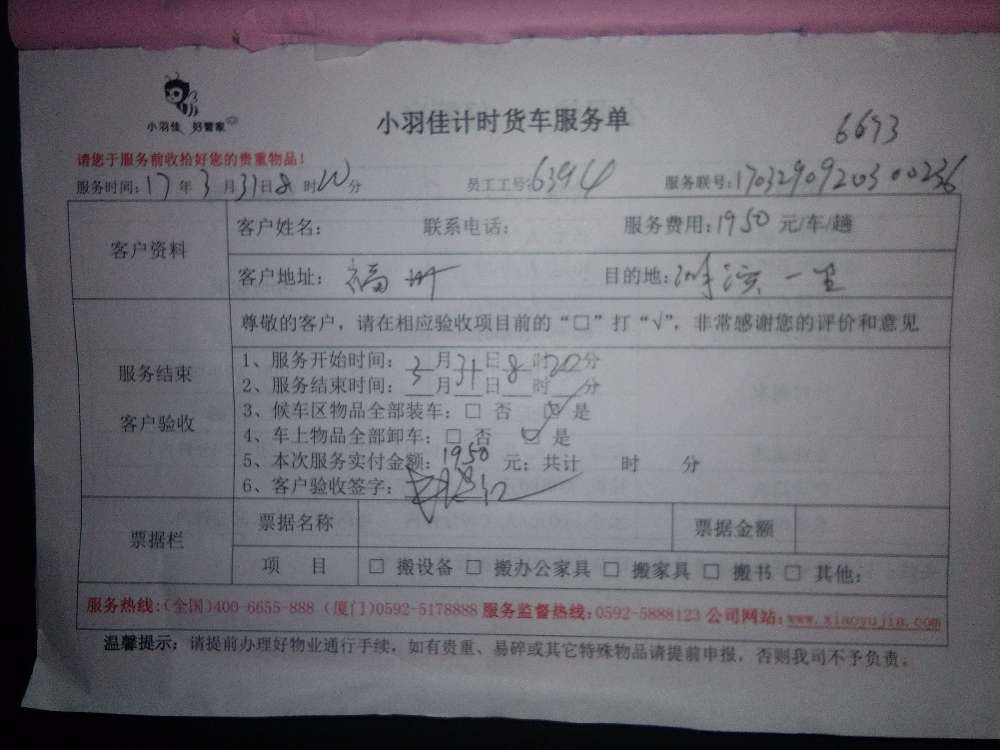 小羽佳 好管家
小羽佳计时货车服务单
6693
请您于服务前收拾好您的贵重物品！
服务时间：17年3月31日8时20分 员工工号：6394 服务联号：1703290920300236
客户资料
客户姓名： 联系电话： 服务费用：1950 元/车/趟
客户地址：福州 目的地： 一里
服务结束
客户验收
尊敬的客户，请在相应验收项目前的“□”打“√”，非常感谢您的评价和意见
1、服务开始时间：3月31日8时20分
2、服务结束时间：3月31日8时__分
3、候车区物品全部装车：□ 否 ☑ 是
4、车上物品全部卸车：□ 否 ☑ 是
5、本次服务实付金额：1950 元；共计 时 分
6、客户验收签字：
票据栏
票据名称 票据金额
项 目 □ 搬设备 □ 搬办公家具 □ 搬家具 □ 搬书 □ 其他：
服务热线：(全国)400-6655-888（厦门)0592-5178888 服务监督热线：0592-5888123 公司网站：www.xiaoyujia.com
温馨提示：请提前办理好物业通行手续，如有贵重、易碎或其它特殊物品请提前申报，否则我司不予负责。